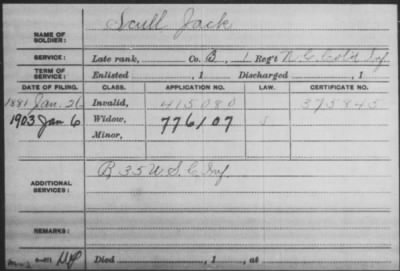 NAME OF SOLDIER: Scull Jack
SERVICE: Late rank, Co. B, 1 Reg't N.C. Col'd Inf.
TERM OF SERVICE: Enlisted , 1 Discharged , 1
DATE OF FILING. CLASS. APPLICATION NO. LAW. CERTIFICATE NO.
1881 Jan. 26 Invalid, 415080 375845
1903 Jan 6 Widow, 776107
Minor,
ADDITIONAL SERVICES: B 35 U.S.C. Inf
REMARKS:
Died , 1 , at